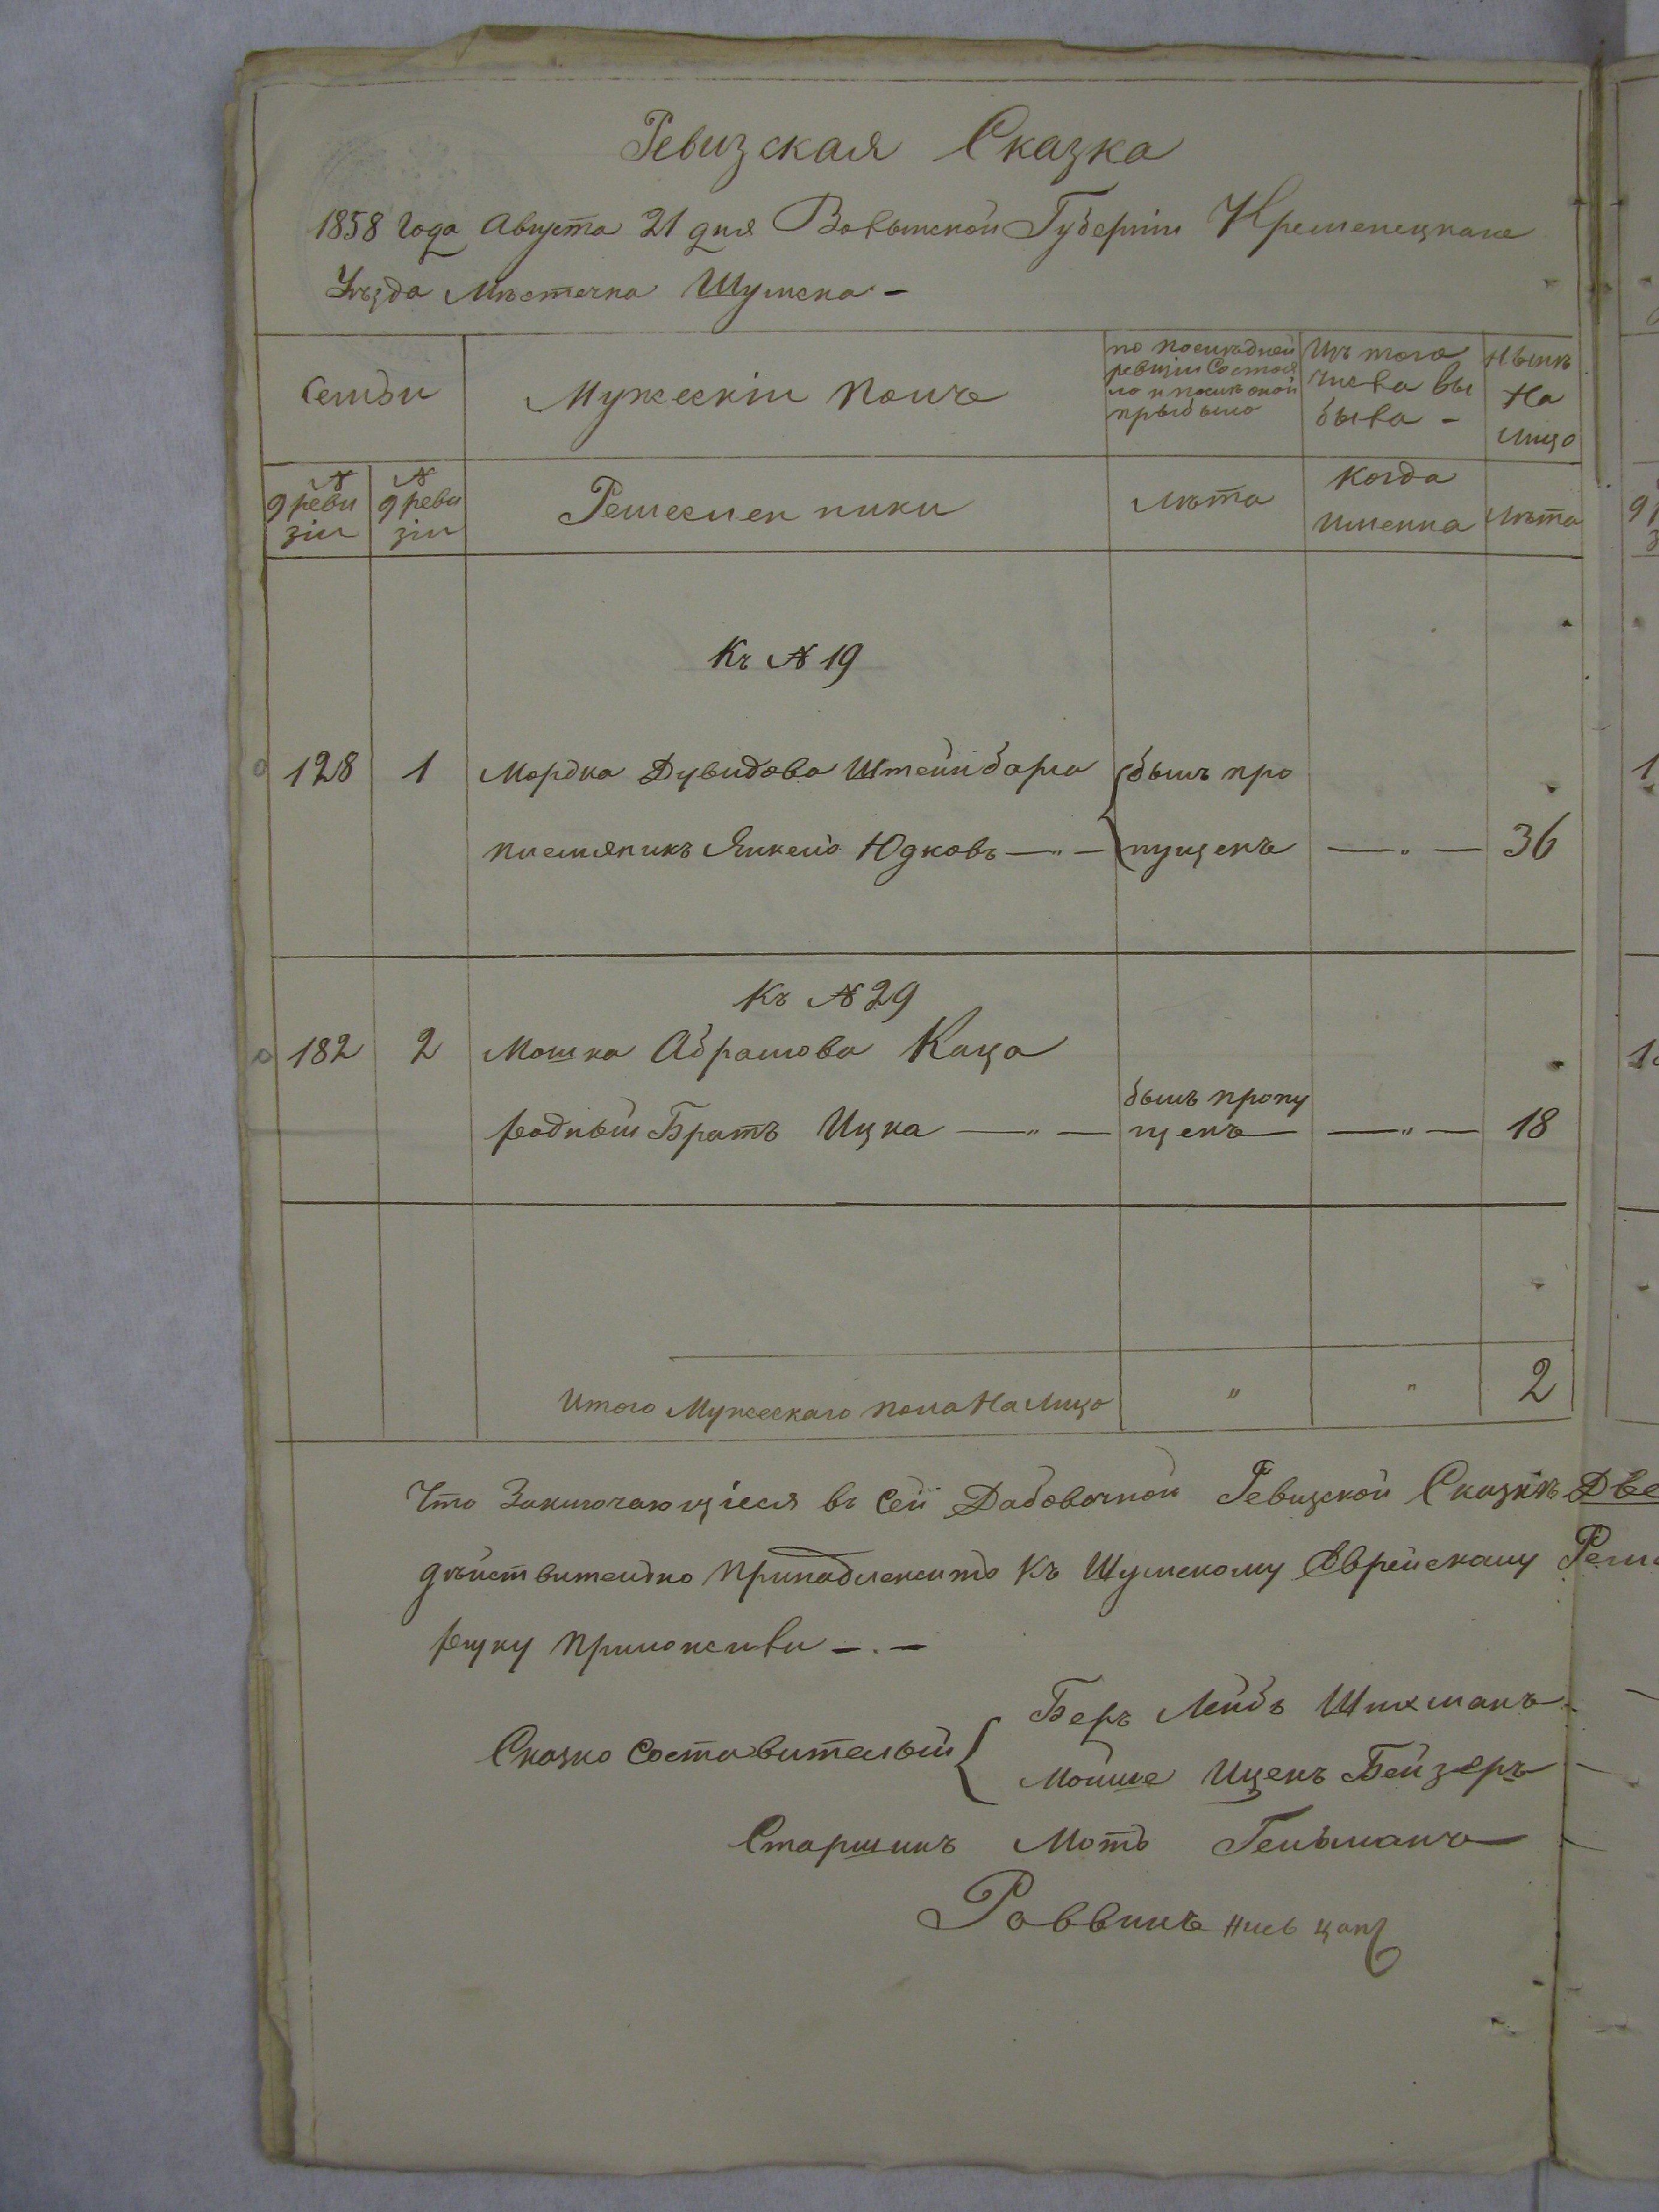 Ревизская Сказка
1858 года Августа 21 дня Волынской Губерніи Кременецкаго
Уѣзда Мѣстечка Шумска -
Семьи
Мужескій полъ
по послѣдней
ревизіи Состоя
ло и послѣ оной
прыбыло
Изъ того
числа вы
была -
Нынѣ
На
лицо
№
9 реви
зіи
№
9 реви
зіи
Ремесленники
лѣта
Когда
именна
лѣта
Къ № 19
128 1 Мордка Дувидова Штейнбарга былъ про
племяникъ Янкель Юдковъ —„— пущенъ —„— 36
Къ № 29
182 2 Мошка Абрамова Каца
родный Братъ Ицка —„—
былъ пропу
щенъ —„— 18
Итого Мужескаго пола На лицо " " 2
Что Заключающіеся въ сей Дабовочной Ревизской Сказкѣ Две
дѣйствительно Принадлежитъ Къ Шумскому Еврейскаму Реме
руку приложили —.—
Сказко Составительй Беръ Лейбъ Шихманъ
Мойше Ицекъ Бейзеръ
Старшинъ Моть Гельманъ
Раввинъ